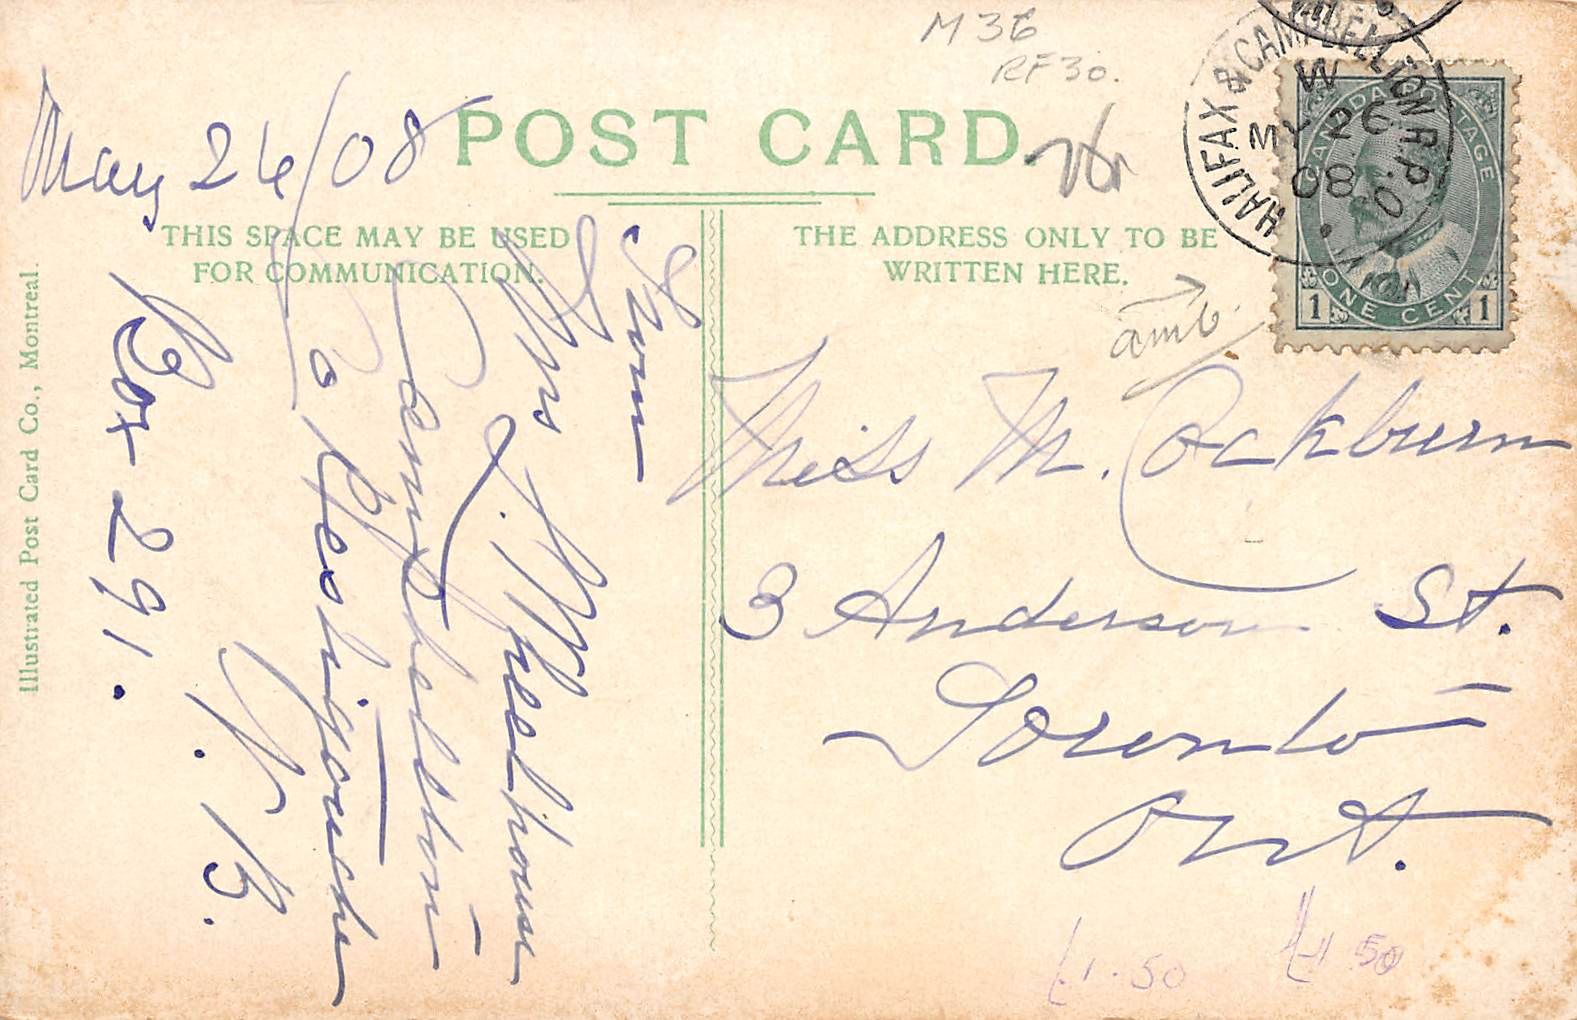 M 36
RF 30.
POST CARD.
May 26/08
THIS SPACE MAY BE USED
FOR COMMUNICATION.
THE ADDRESS ONLY TO BE
WRITTEN HERE.
HALIFAX & CAMPBELLTON R.P.O.
W
MY 26
08
CANADA POSTAGE
ONE CENT
1 1
amb.
From
Mrs J. Wheelhouse
Campbellton
Co Restigouche
N. B.
Box 291.
Miss M. Cockburn
3 Anderson St.
Toronto
Ont.
£1.50
£1 50
Illustrated Post Card Co., Montreal.